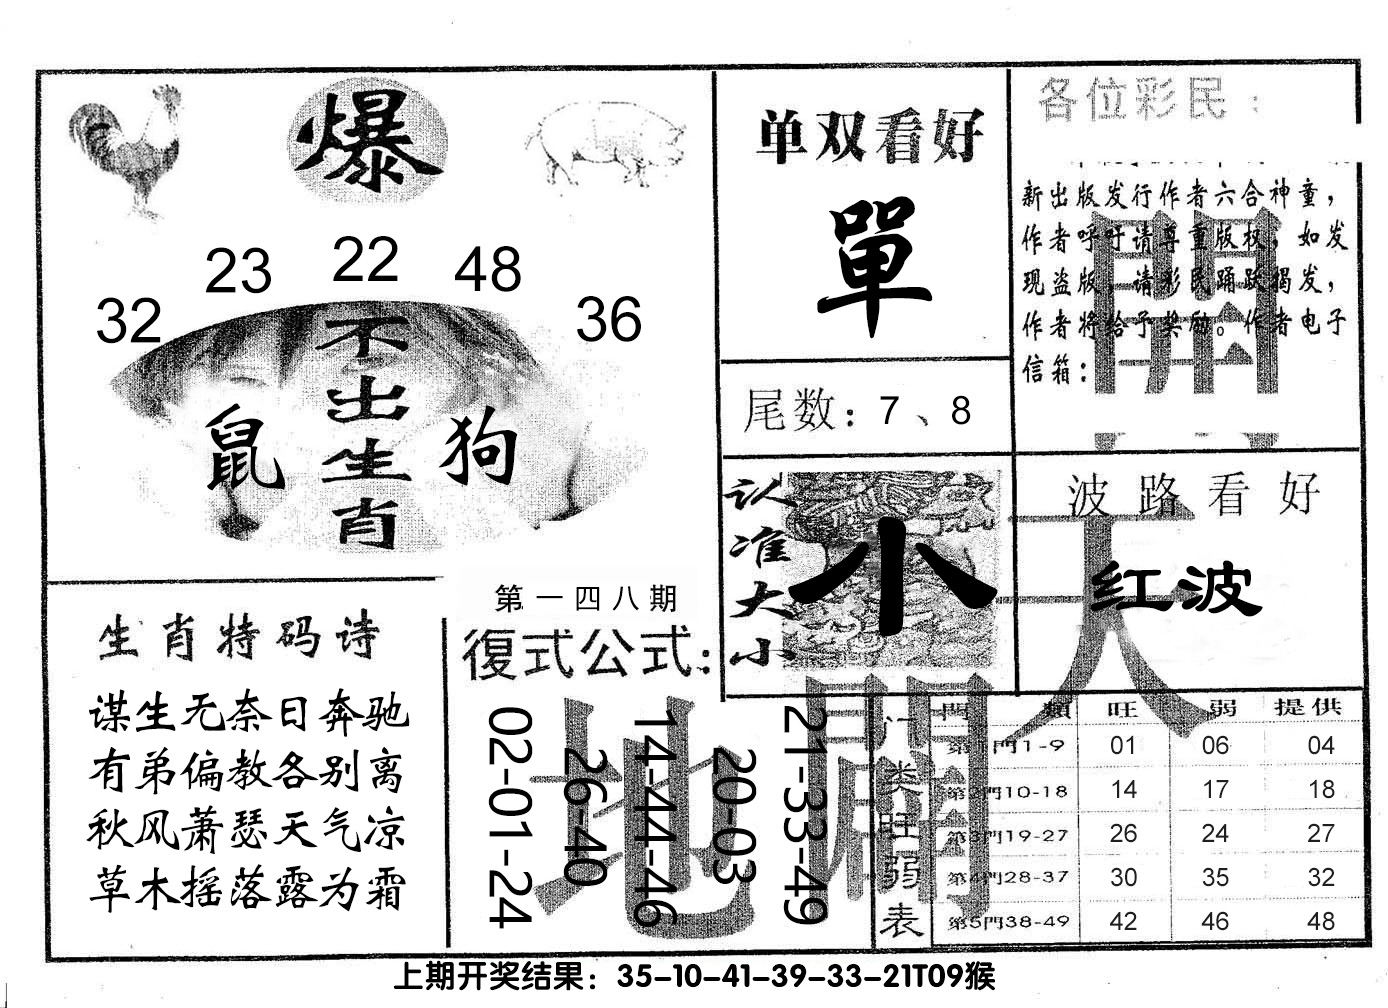 爆
23 22 48
32 36
不出生肖
鼠 狗
单双看好
單
尾数：7、8
各位彩民：
新出版发行作者六合神童，
作者呼吁请尊重版权，如发
现盗版，请彩民踊跃揭发，
作者将给予奖励。作者电子
信箱：
认准大小
小
波路看好
红波
生肖特码诗
谋生无奈日奔驰
有弟偏教各别离
秋风萧瑟天气凉
草木摇落露为霜
第一四八期
復式公式：
02-01-24
26-40
14-44-46
20-03
21-33-49
天
地
門类旺弱表
門類 旺 弱 提供
第1門1-9 01 06 04
第2門10-18 14 17 18
第3門19-27 26 24 27
第4門28-37 30 35 32
第5門38-49 42 46 48
上期开奖结果：35-10-41-39-33-21T09猴